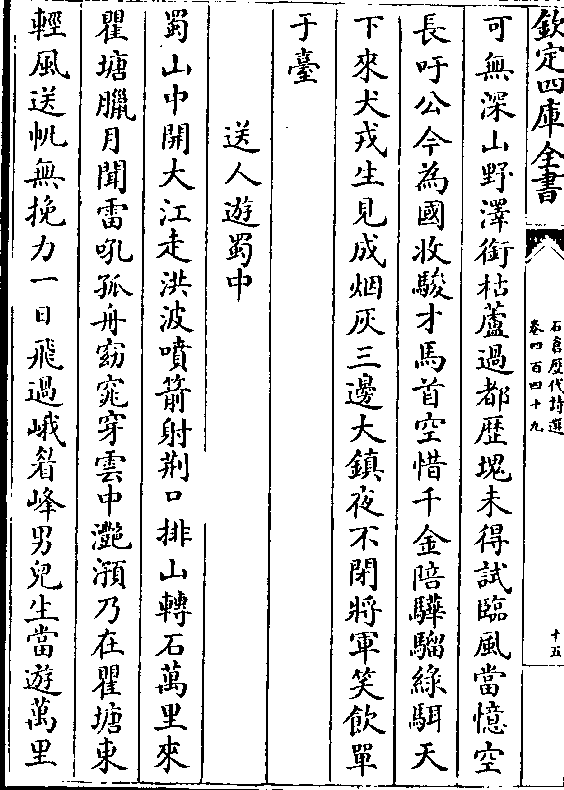 欽定四庫全書
石倉歷代詩選
卷四百四十九
十五
可無深山野澤銜枯蘆過都歴塊未得試臨風當憶空
長吁公今為國收駿才馬首空惜千金陪驊騮綠駬天
下來犬戎生見成烟灰三邊大鎮夜不閉將軍笑飲單
于臺
送人遊蜀中
蜀山中開大江走洪波噴箭射荆口排山轉石萬里來
瞿塘臘月聞雷吼孤舟窈窕穿雲中灧澦乃在瞿塘東
輕風送帆無挽力一日飛過峨眉峰男兒生當遊萬里